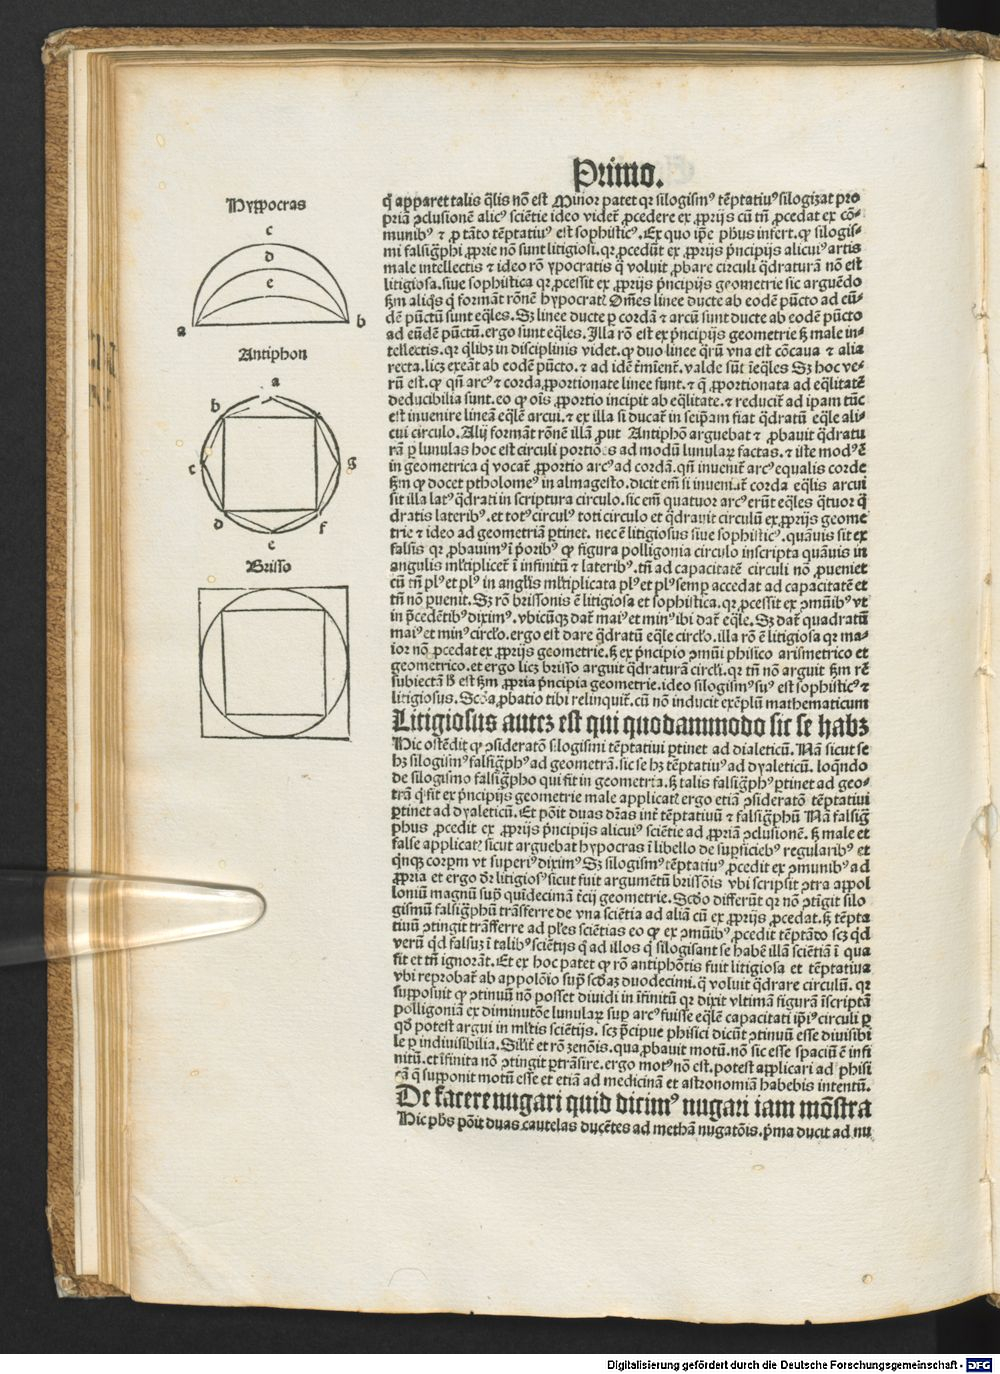 Primo.
Hyppocras
c
d
e
a b
Antiphon
a
b
c g
d f
e
Brisso
q̄ apparet talis q̄lis nō est Minor patet qr silogismꝰ tēptatiuꝰ silogizat pro
priā ↄclusionē alicꝰ sciētie ideo videt̄ ꝓcedere ex ꝓprijs cū tn̄ ꝓcedat ex cō-
munibꝰ ⁊ ꝓ tāto tēptatiuꝰ est sophisticꝰ. Ex quo ip̄e ph̄us infert. ꝙ silogis-
mi falsigͣphi ꝓprie nō sunt litigiosi. qr ꝓcedūt ex ꝓprijs pͥncipijs alicuiꝰ artis
male intellectis ⁊ ideo rō ypocratis q̄ voluit ꝓbare circuli q̄draturā nō est
litigiosa. siue sophistica qr ꝓcessit ex ꝓprijs pͥncipijs geometrie sic arguēdo
ẜm aliqͦs q̄ formāt rōnē hypocratꝭ Om̄es linee ducte ab eodē pūcto ad eū-
dē pūctū sunt eq̄les. Sꝫ linee ducte ꝑ cordā ⁊ arcū sunt ducte ab eodē pūcto
ad eūdē pūctū. ergo sunt eq̄les. Illa rō est ex pͥncipijs geometrie ẜꝫ male in-
tellectis. qr q̄libꝫ in disciplinis videt. ꝙ duo linee q̄rū vna est cōcaua ⁊ alia
recta. licꝫ exeāt ab eodē pūcto. ⁊ ad idē t̄mient̄. valde sūt īeq̄les Sꝫ hoc ve-
rū est. ꝙ qn̄ arcꝰ ⁊ corda ꝓportionate linee sunt. ⁊ q̄ ꝓportionata ad eq̄litatē
deducibilia sunt. eo ꝙ oīs ꝓportio incipit ab eq̄litate. ⁊ reducit̄ ad ipam tūc
est inuenire lineā eq̄lē arcui. ⁊ ex illa si ducat̄ in seip̄am fiat q̄dratū eq̄le ali-
cui circulo. Alij formāt rōnē illā ꝓut Antiphō arguebat ⁊ ꝓbauit q̄dratu
rā ꝑ lunulas hoc est circuli portiōes ad modū lunulaꝝ factas. ⁊ iste modꝰ ē
in geometrica q̄ vocat̄ ꝓportio arcꝰ ad cordā. qn̄ inuenit̄ arcꝰ equalis corde
ẜm ꝙ docet ptholomeꝰ in almagesto. dicit em̄ si inueniat̄ corda eq̄lis arcui
sit illa latꝰ q̄drati in scriptura circulo. sic em̄ quatuor arcꝰ erūt eq̄les q̄tuor q̄
dratis lateribꝰ. et totꝰ circulꝰ toti circulo et q̄drauit circulū ex ꝓprijs geome
trie ⁊ ideo ad geometriā ꝑtinet. nec ē litigiosus siue sophisticꝰ. quāuis sit ex
falsis qr ꝓbauimꝰ ī pͥoribꝰ ꝙ figura polligonia circulo inscripta quāuis in
angulis mͣltiplicet̄ ī infinitū ⁊ lateribꝰ. tn̄ ad capacitatē circuli nō ꝓueniet
cū tn̄ plꝰ et plꝰ in angl̄is mͣltiplicata plꝰ et plꝰ semꝑ accedat ad capacitatē et
tn̄ nō ꝑuenit. Sꝫ rō brissonis ē litigiosa et sophistica. qr ꝓcessit ex ↄmūibꝰ vt
in p̄cedētibꝰ diximꝰ. vbicūqꝫ dat̄ maiꝰ et minꝰ ibi dat̄ eq̄le. Sꝫ dat̄ quadratū
maiꝰ et minꝰ circl̄o. ergo est dare q̄dratū eq̄le circl̄o. illa rō ē litigiosa qr ma-
ior nō ꝓcedat ex ꝓprijs geometrie. ẜꝫ ex pͥncipio ↄmūi phisico arismetrico et
geometrico. et ergo licꝫ brisso arguit q̄draturā circl̄i. qr tn̄ nō arguit ẜm rē
subiectā ꝉ est ẜm ꝓpria pͥncipia geometrie. ideo silogismꝰ suꝰ est sophisticꝰ ⁊
litigiosus. Scd̄a ꝓbatio tibi relinquit̄. cū nō inducit exēplū mathematicum
Litigiosus autēꝫ est qui quodammodo sic se habꝫ
Hic ostēdit ꝙ ↄsideratō silogismi tēptatiui ꝑtinet ad dialeticū. Nā sicut se
hꝫ silogismꝰ falsigͣphꝰ ad geometrā. sic se hꝫ tēptatiuꝰ ad dyaleticū. loqn̄do
de silogismo falsigͣpho qui fit in geometria. ẜꝫ talis falsigͣphꝰ ꝑtinet ad geo-
trā q̄ fit ex pͥncipijs geometrie male applicatꝭ ergo etiā ↄsideratō tēptatiui
ꝑtinet ad dyaleticū. Et pōit duas dr̄as int̄ tēptatiuū ⁊ falsigͣphū Nā falsigͣ
phus ꝓcedit ex ꝓprijs pͥncipijs alicuiꝰ sciētie ad ꝓpriā ↄclusionē. ẜꝫ male et
false applicatꝭ sicut arguebat hypocras ī libello de suꝑficiebꝰ regularibꝰ et
qͥnqꝫ corꝑm vt superiꝰ diximꝰ Sꝫ silogismꝰ tēptatiuꝰ ꝓcedit ex ↄmunibꝰ ad
ꝓpria et ergo dr̄ litigiosꝰ sicut fuit argumētū brissōis vbi scripsit ↄtra appol
loniū magnū suꝑ quīdecimā t̄cij geometrie. Scd̄o differūt qr nō ↄtīgit silo
gismū falsigͣphū trāsferre de vna sciētia ad aliā cū ex ꝓprijs ꝓcedat. ẜꝫ tēpta
tiuū ↄtingit trāsferre ad pl̄es sciētias eo ꝙ ex ↄmūibꝰ ꝓcedit tēptādo scꝫ qd̄
verū qd̄ falsuꝫ ī talibꝰ sciētijs q̄ ad illos q̄ silogisant se habē illā sciētiā ī qua
fit et tn̄ ignorāt. Et ex hoc patet ꝙ rō antiphōtis fuit litigiosa et tēptatiua
vbi reprobat̄ ab appolōio suꝑ scd̄aꝫ duodecimi. q̄ voluit q̄drare circulū. qr
supposuit ꝙ ↄtinuū nō posset diuidi in īfinitū qr dixit vltimā figurā īscriptā
polligoniā ex diminutōe lunulaꝝ suꝑ arcꝰ fuisse eq̄lē capacitati ip̄iꝰ circuli ꝑ
qd̄ potest argui in ml̄tis sciētijs. scꝫ pͥncipue phisici dicūt ↄtinuū esse diuisibi
le ꝑ indiuisibilia. Silr̄ et rō zenōis. qua ꝓbauit motū. nō sic esse spaciū ē infi
nitū. et īfinita nō ↄtingit ꝑtrāsire. ergo motꝰ nō est. potest applicari ad phisi
cā q̄ supponit motū esse et etiā ad medicinā et astronomiā habebis intentū.
De facere nugari quid dicimꝰ nugari iam mōstra
Hic ph̄s pōit duas cautelas ducētes ad methā nugatōis. pͥma ducit ad nu
Digitalisierung gefördert durch die Deutsche Forschungsgemeinschaft - DFG